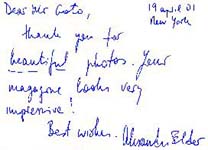 Dear Mr Goto,
19 april 01
New York
thank you for
beautiful photos. Your
magazine looks very
impressive!
Best wishes. Alexander